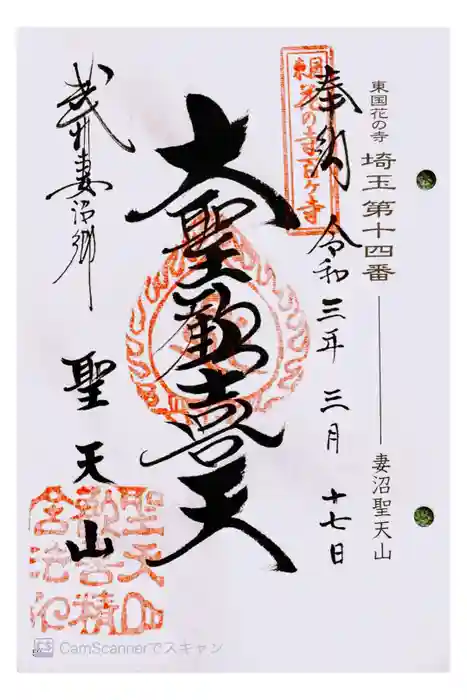 東国花の寺 埼玉 第十四番 ── 妻沼聖天山
東国花の寺百ヶ寺
奉納 令和三年三月十七日
大聖歓喜天
武州妻沼郷
聖天山
CamScannerでスキャン